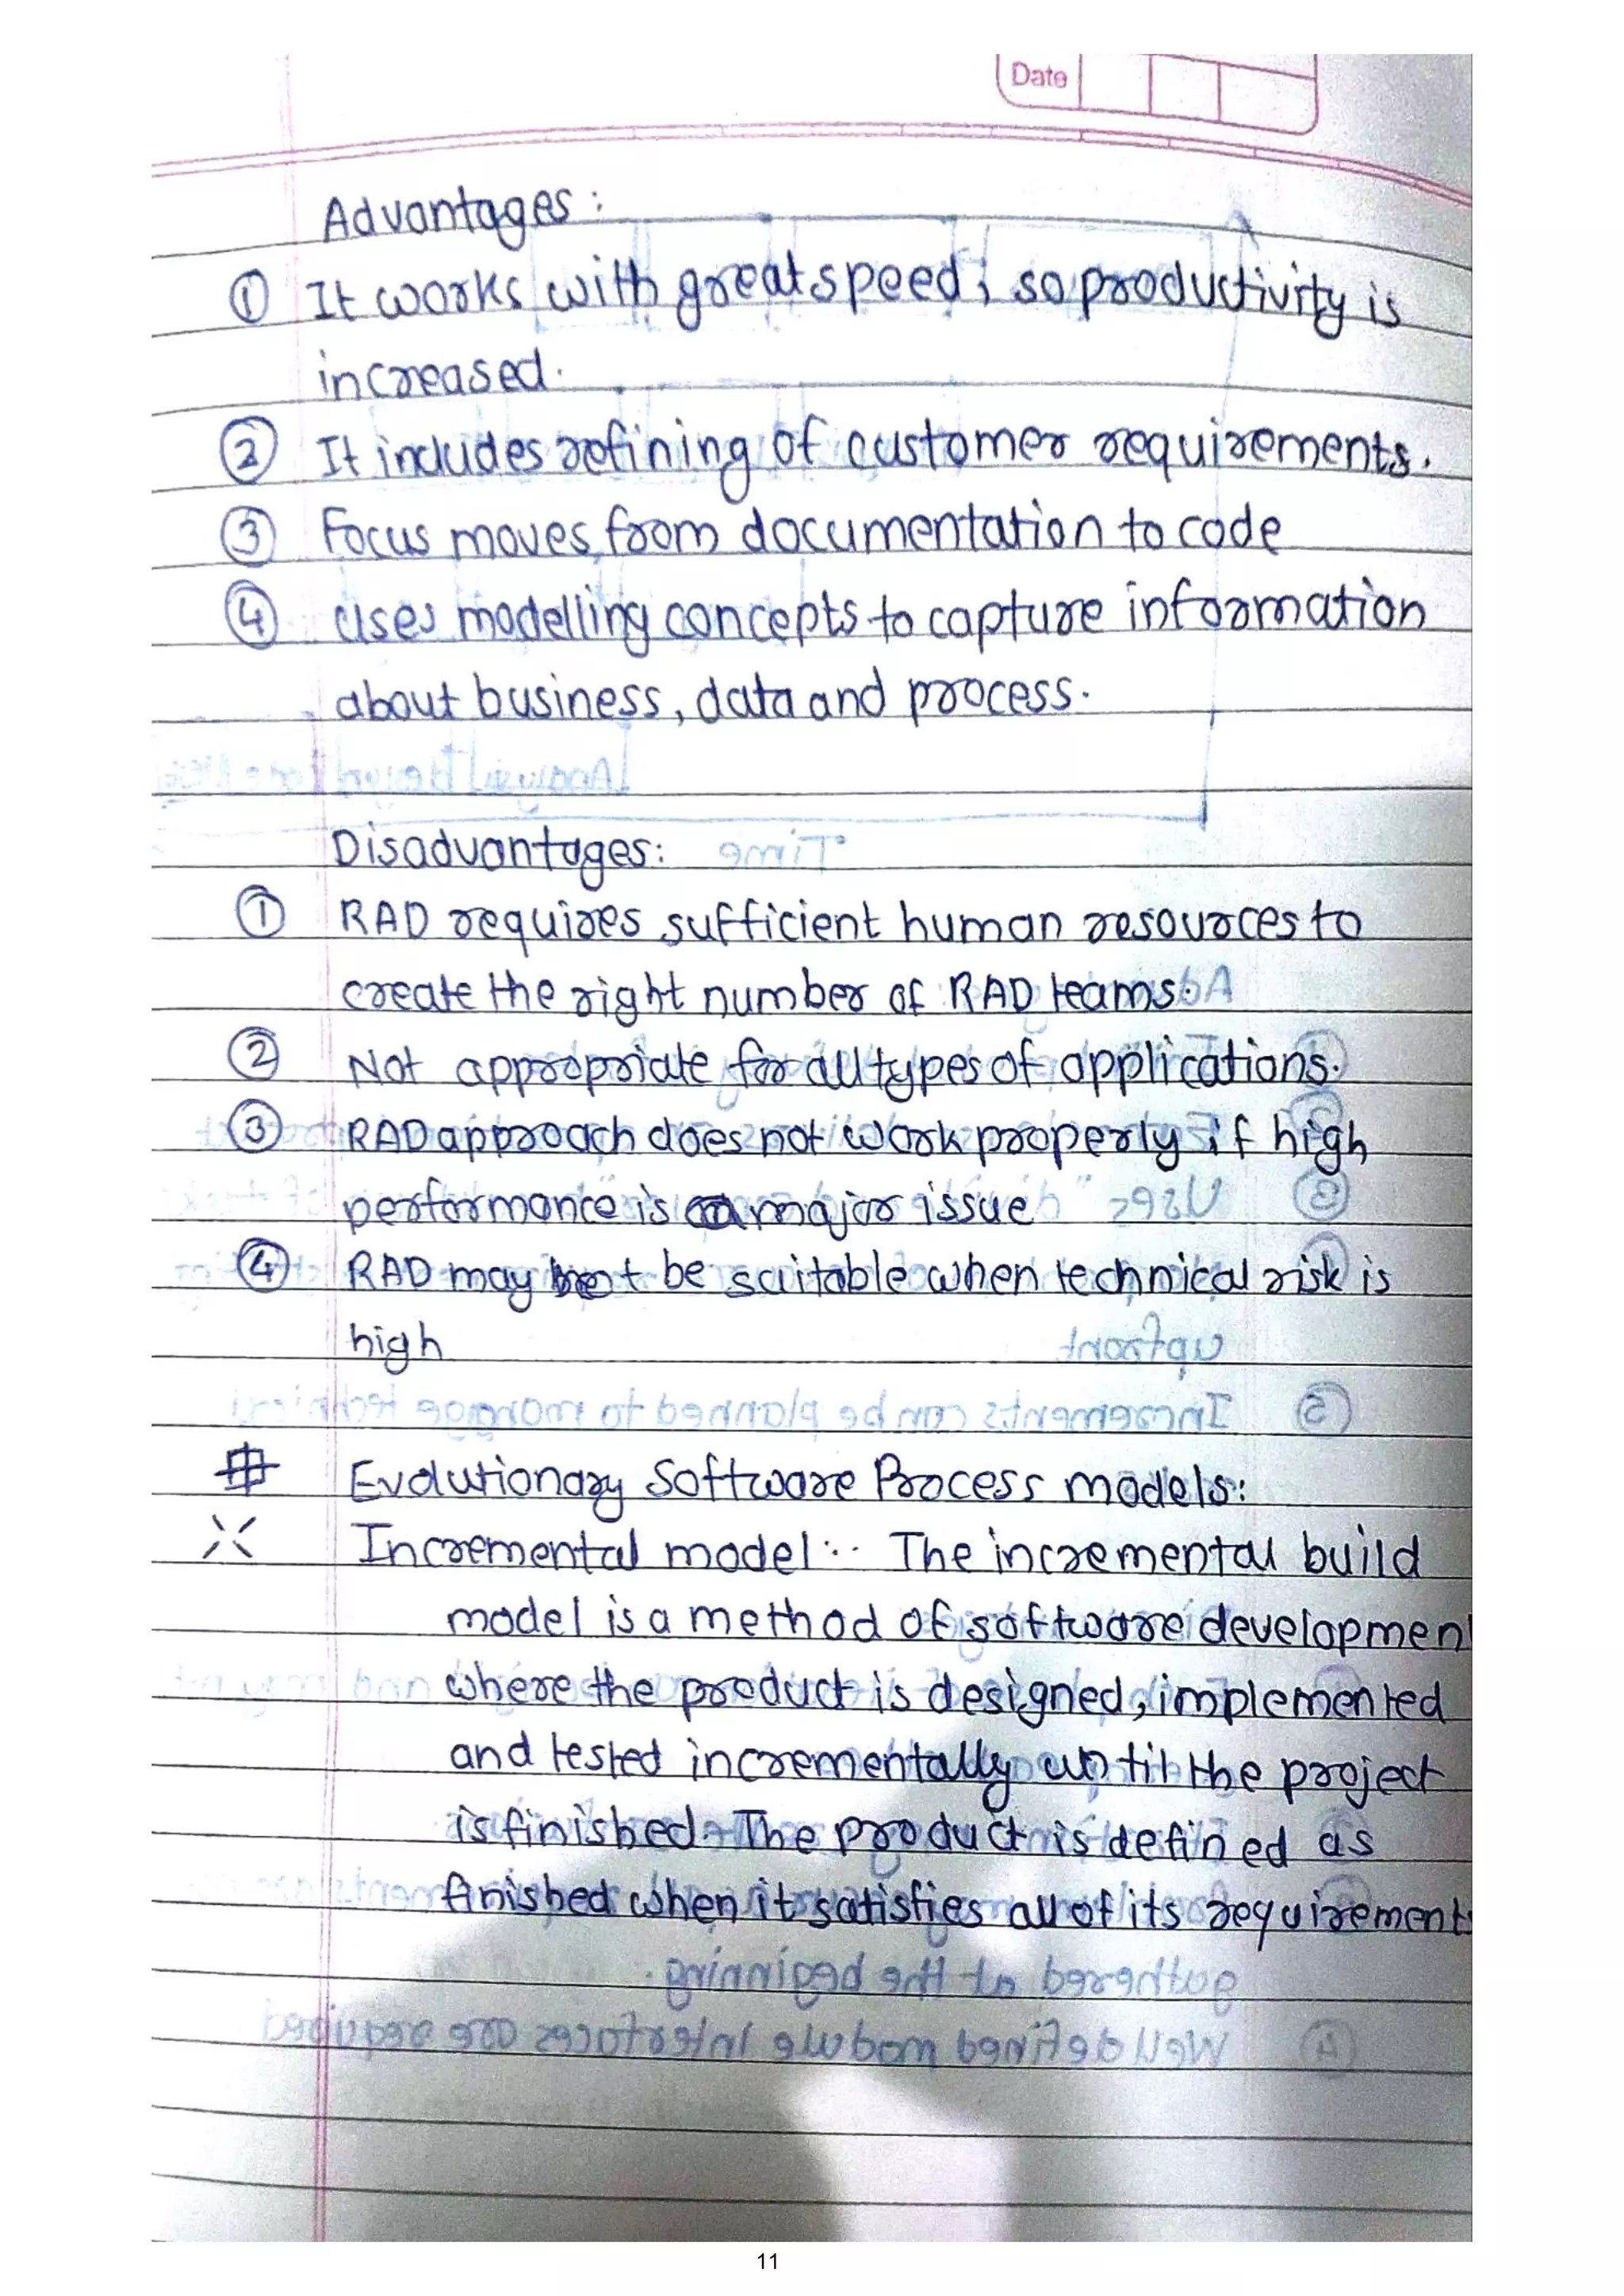 Date
Advantages :
① It works with great speed; so productivity is
increased.
② It includes refining of customer requirements.
③ Focus moves from documentation to code
④ Uses modelling concepts to capture information
about business, data and process.
Disadvantages:
① RAD requires sufficient human resources to
create the right number of RAD teams.
② Not appropriate for all types of applications.
③ RAD approach does not work properly if high
performance is a major issue
④ RAD may not be suitable when technical risk is
high
# Evolutionary Software Process models:
※ Incremental model :- The incremental build
model is a method of software developmen
where the product is designed, implemented
and tested incrementally until the project
is finished. The product is defined as
finished when it satisfies all of its requirements
11